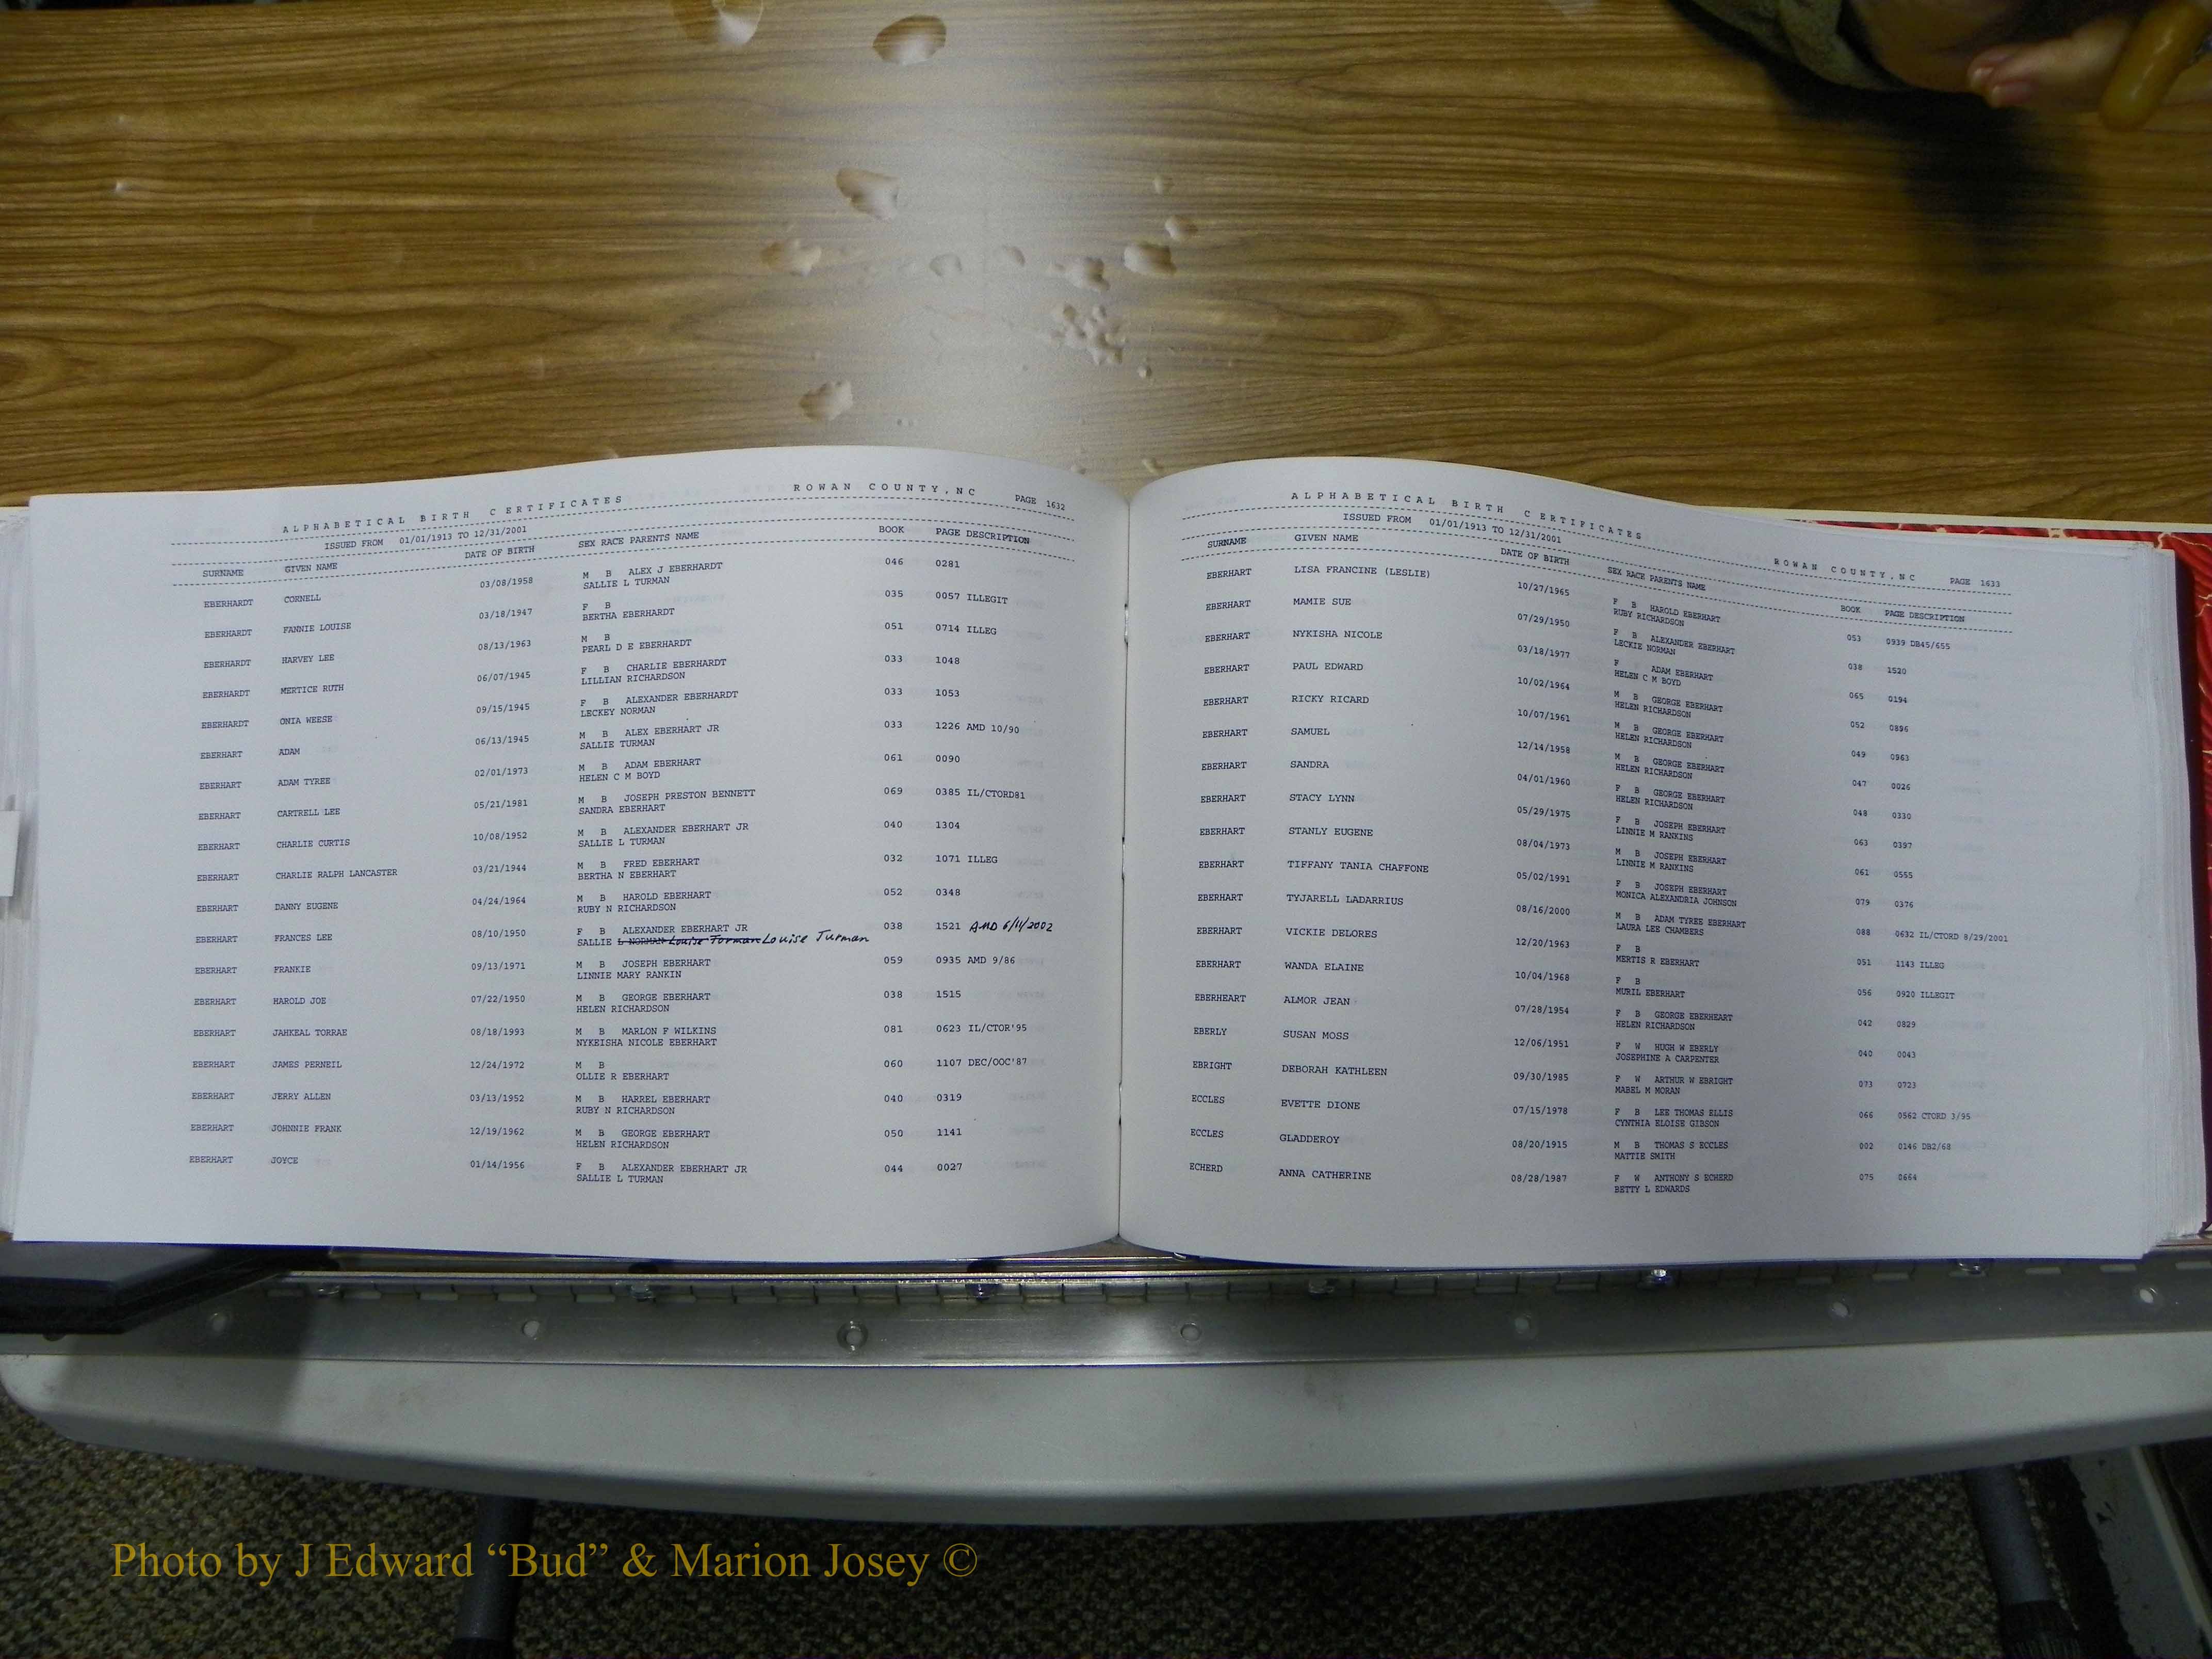 ALPHABETICAL BIRTH CERTIFICATES ROWAN COUNTY,NC PAGE 1632
ISSUED FROM 01/01/1913 TO 12/31/2001
SURNAME GIVEN NAME DATE OF BIRTH SEX RACE PARENTS NAME BOOK PAGE DESCRIPTION
EBERHARDT CORNELL 03/08/1958 M B ALEX J EBERHARDT 046 0281
SALLIE L TURMAN
EBERHARDT FANNIE LOUISE 03/18/1947 F B 035 0057 ILLEGIT
BERTHA EBERHARDT
EBERHARDT HARVEY LEE 08/13/1963 M B 051 0714 ILLEG
PEARL D E EBERHARDT
EBERHARDT MERTICE RUTH 06/07/1945 F B CHARLIE EBERHARDT 033 1048
LILLIAN RICHARDSON
EBERHARDT ONIA WEESE 09/15/1945 F B ALEXANDER EBERHARDT 033 1053
LECKEY NORMAN
EBERHART ADAM 06/13/1945 M B ALEX EBERHART JR 033 1226 AMD 10/90
SALLIE TURMAN
EBERHART ADAM TYREE 02/01/1973 M B ADAM EBERHART 061 0090
HELEN C M BOYD
EBERHART CARTRELL LEE 05/21/1981 M B JOSEPH PRESTON BENNETT 069 0385 IL/CTORD81
SANDRA EBERHART
EBERHART CHARLIE CURTIS 10/08/1952 M B ALEXANDER EBERHART JR 040 1304
SALLIE L TURMAN
EBERHART CHARLIE RALPH LANCASTER 03/21/1944 M B FRED EBERHART 032 1071 ILLEG
BERTHA N EBERHART
EBERHART DANNY EUGENE 04/24/1964 M B HAROLD EBERHART 052 0348
RUBY N RICHARDSON
EBERHART FRANCES LEE 08/10/1950 F B ALEXANDER EBERHART JR 038 1521 AMD 6/11/2002
SALLIE L NORMAN Louise Torman Louise Turman
EBERHART FRANKIE 09/13/1971 M B JOSEPH EBERHART 059 0935 AMD 9/86
LINNIE MARY RANKIN
EBERHART HAROLD JOE 07/22/1950 M B GEORGE EBERHART 038 1515
HELEN RICHARDSON
EBERHART JAHKEAL TORRAE 08/18/1993 M B MARLON F WILKINS 081 0623 IL/CTOR'95
NYKEISHA NICOLE EBERHART
EBERHART JAMES PERNEIL 12/24/1972 M B 060 1107 DEC/OOC'87
OLLIE R EBERHART
EBERHART JERRY ALLEN 03/13/1952 M B HARREL EBERHART 040 0319
RUBY N RICHARDSON
EBERHART JOHNNIE FRANK 12/19/1962 M B GEORGE EBERHART 050 1141
HELEN RICHARDSON
EBERHART JOYCE 01/14/1956 F B ALEXANDER EBERHART JR 044 0027
SALLIE L TURMAN
ALPHABETICAL BIRTH CERTIFICATES ROWAN COUNTY,NC PAGE 1633
ISSUED FROM 01/01/1913 TO 12/31/2001
SURNAME GIVEN NAME DATE OF BIRTH SEX RACE PARENTS NAME BOOK PAGE DESCRIPTION
EBERHART LISA FRANCINE (LESLIE) 10/27/1965 F B HAROLD EBERHART 053 0939 DB45/655
RUBY RICHARDSON
EBERHART MAMIE SUE 07/29/1950 F B ALEXANDER EBERHART 038 1520
LECKIE NORMAN
EBERHART NYKISHA NICOLE 03/18/1977 F ADAM EBERHART 065 0194
HELEN C M BOYD
EBERHART PAUL EDWARD 10/02/1964 M B GEORGE EBERHART 052 0896
HELEN RICHARDSON
EBERHART RICKY RICARD 10/07/1961 M B GEORGE EBERHART 049 0963
HELEN RICHARDSON
EBERHART SAMUEL 12/14/1958 M B GEORGE EBERHART 047 0026
HELEN RICHARDSON
EBERHART SANDRA 04/01/1960 F B GEORGE EBERHART 048 0330
HELEN RICHARDSON
EBERHART STACY LYNN 05/29/1975 F B JOSEPH EBERHART 063 0397
LINNIE M RANKINS
EBERHART STANLY EUGENE 08/04/1973 M B JOSEPH EBERHART 061 0555
LINNIE M RANKINS
EBERHART TIFFANY TANIA CHAFFONE 05/02/1991 F B JOSEPH EBERHART 079 0376
MONICA ALEXANDRIA JOHNSON
EBERHART TYJARELL LADARRIUS 08/16/2000 M B ADAM TYREE EBERHART 088 0632 IL/CTORD 8/29/2001
LAURA LEE CHAMBERS
EBERHART VICKIE DELORES 12/20/1963 F B 051 1143 ILLEG
MERTIS R EBERHART
EBERHART WANDA ELAINE 10/04/1968 F B 056 0920 ILLEGIT
MURIL EBERHART
EBERHEART ALMOR JEAN 07/28/1954 F B GEORGE EBERHEART 042 0829
HELEN RICHARDSON
EBERLY SUSAN MOSS 12/06/1951 F W HUGH W EBERLY 040 0043
JOSEPHINE A CARPENTER
EBRIGHT DEBORAH KATHLEEN 09/30/1985 F W ARTHUR W EBRIGHT 073 0723
MABEL M MORAN
ECCLES EVETTE DIONE 07/15/1978 F B LEE THOMAS ELLIS 066 0562 CTORD 3/95
CYNTHIA ELOISE GIBSON
ECCLES GLADDEROY 08/20/1915 M B THOMAS S ECCLES 002 0146 DB2/68
MATTIE SMITH
ECHERD ANNA CATHERINE 08/28/1987 F W ANTHONY S ECHERD 075 0664
BETTY L EDWARDS
Photo by J Edward “Bud” & Marion Josey ©